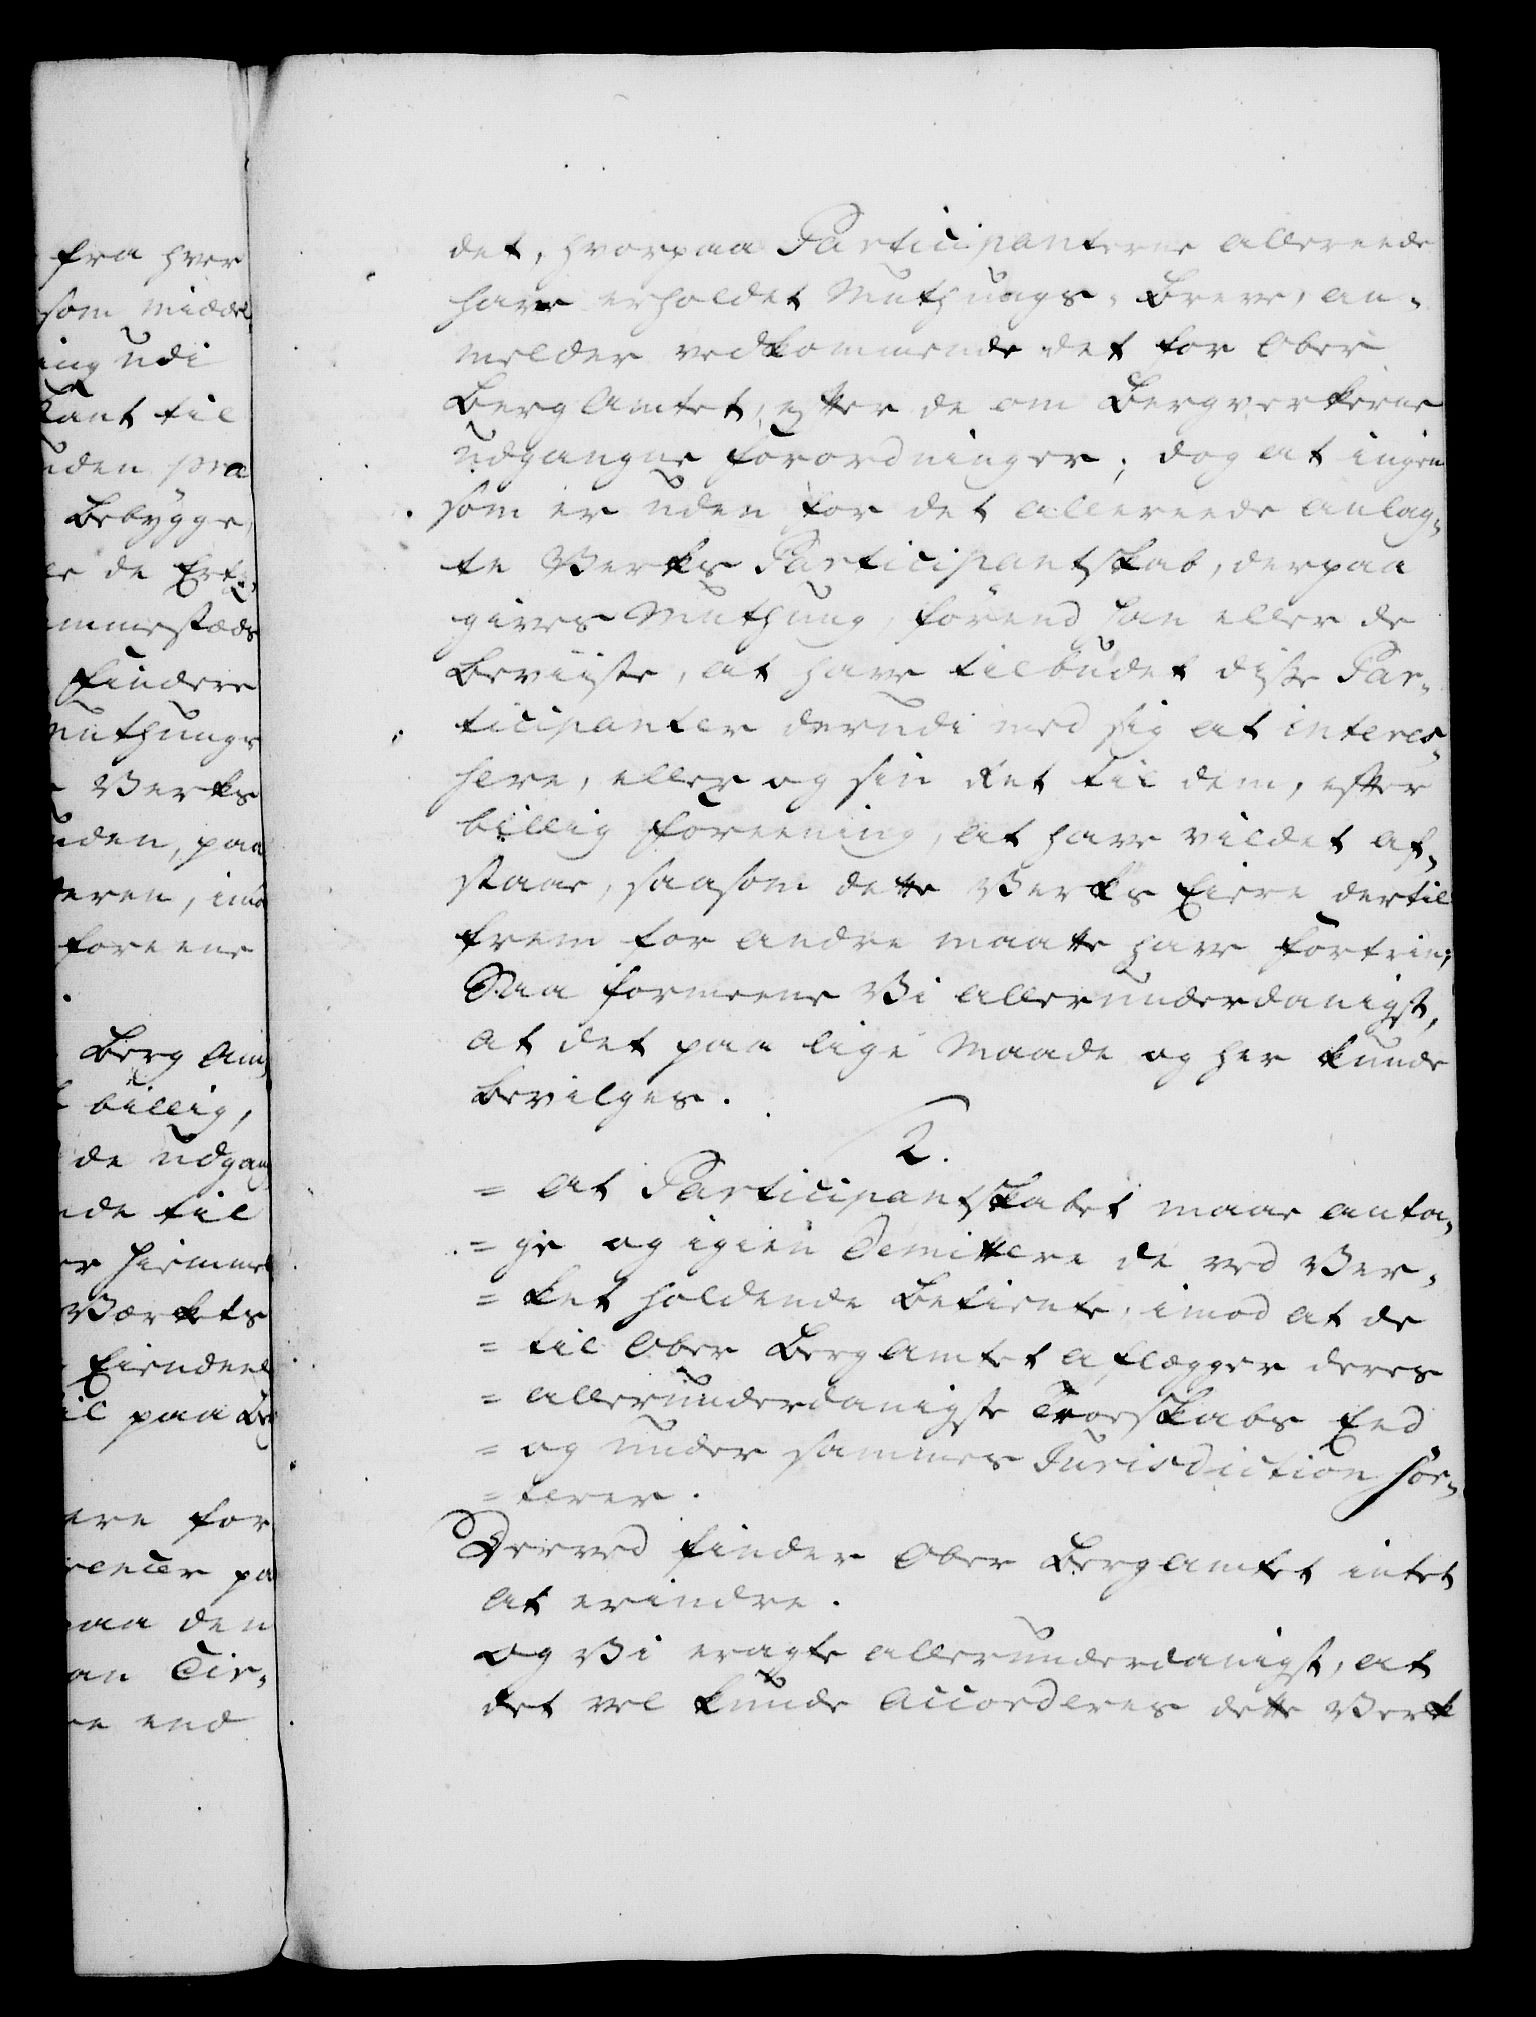 fra hver
som middel
ing udi
kant til
uden pra
Bebygge,
le de Ert-
mmestæds
findere
Muthungs
Verks
uden, paa
teren, imod
foreene
Berg Am
billig,
de udgan
nde til
er hiemmel
Værkets
Eiendeel
il paa Be
ere for
rencer pa
paa den
an Cir-
re end
det, hvorpaa Participanterne allereede
have erholdet Muthungs-Breve, an-
melder vedkommende det for Ober
Berg Amtet, efter de om Bergverkerne
udgangne forordninger; dog at ingen
som er uden for det allereede anlag-
te Verks Participantskab, derpaa
gives Muthung, førend han eller de
beviiste, at have tilbudet disse Par-
ticipanter derudi med sig at interes-
sere, eller og sin Ret til dem, efter
billig foreening, at have vildet af-
staae, saasom dette Verks Eiere dertil
frem for andre maatte have fortrin;
Saa formeene Vi allerunderdanigst,
at det paa lige Maade og her kunde
bevilges.
2.
= at Participantskabet maae anta-
= ge og igien Demittere de ved Ver-
= ket holdende Betiente, imod at de
= til Ober BergAmtet aflægger deres
= allerunderdanigste Troeskabs Eed
= og under sammes Jurisdiction sor-
= terer.
Derved finder Ober BergAmtet intet
at erindre.
og Vi eragte allerunderdanigst, at
det vel kunde Accorderes dette Verk